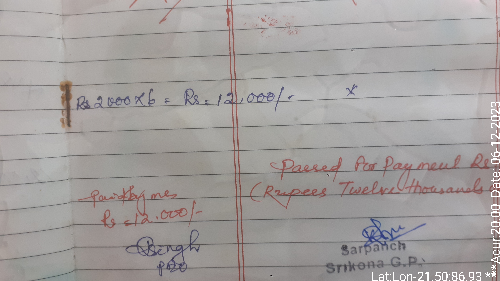 Rs 2000x6 = Rs = 12,000/- x
Passed for payment Rs
(Rupees Twelve thousands
Paid by me
Rs = 12.000/-
Singh
PEO
Sarpanch
Srikona G.P.
***Agur:20:00 Date: 06-12-2023
Lat:Lon-21.50:86.93 ***